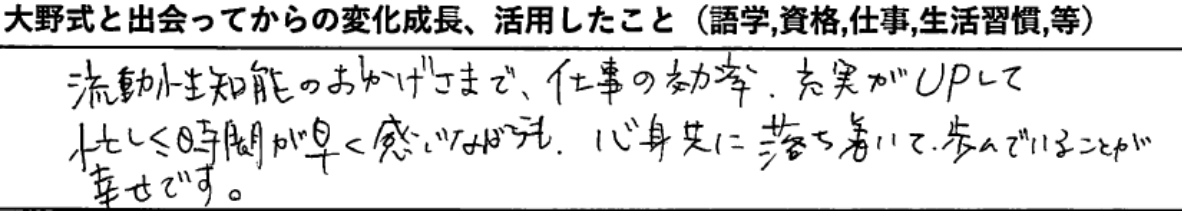 大野式と出会ってからの変化成長、活用したこと（語学,資格,仕事,生活習慣,等）
流動性知能のおかげさまで、仕事の効率、充実がUPして
忙しく時間が早く感じながらも、心身共に落ち着いて、歩んでいることが
幸せです。